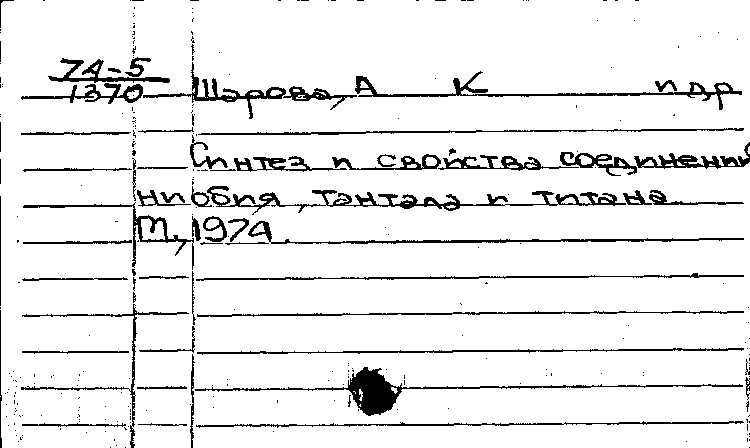 74-5
1370 Шарова, А К и др
Синтез и свойства соединений
ниобия, тантала и титана
М., 1974.